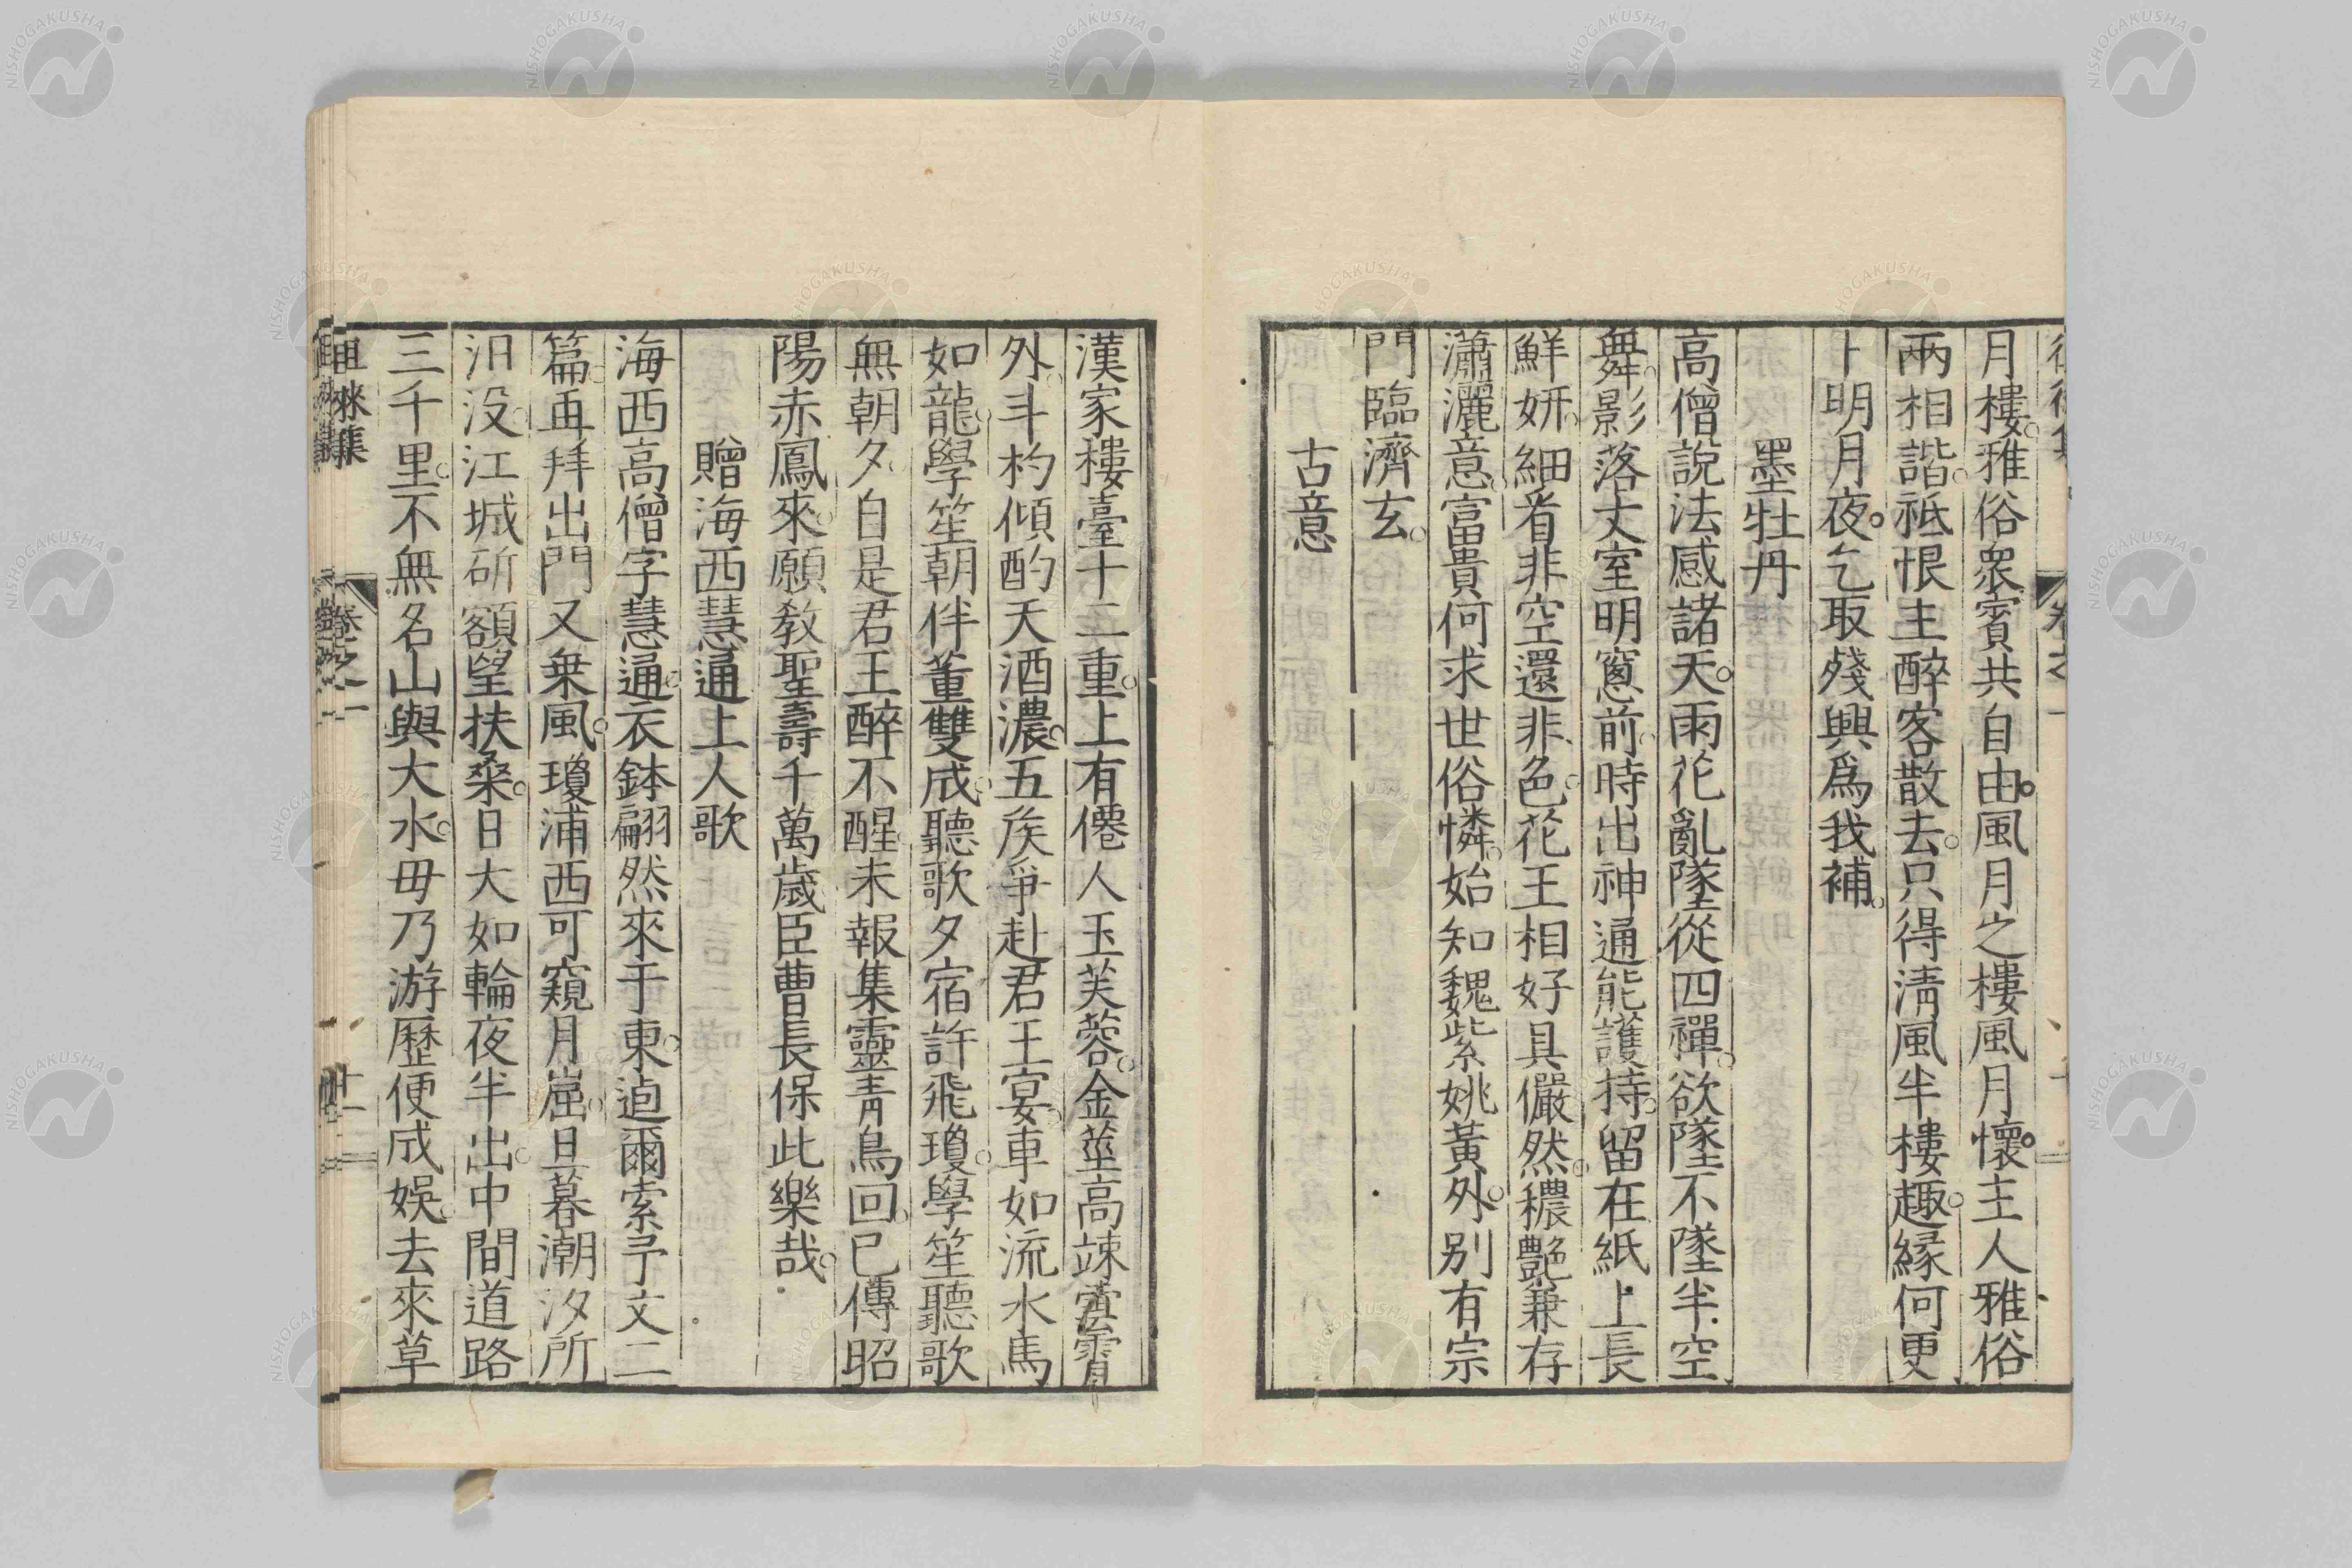 月樓雅俗衆賓共自由風月之樓風月懷主人雅俗
兩相諧祗恨主醉客散去只得淸風半樓趣緣何更
卜明月夜乞取殘興爲我補
墨牡丹
高僧說法感諸天雨花亂墜從四禪欲墜不墜半空
舞影落丈室明窻前時出神通能護持留在紙上長
鮮妍細看非空還非色花王相好具儼然穠艷兼存
瀟灑意富貴何求世俗憐始知魏紫姚黃外別有宗
門臨濟玄
古意
漢家樓臺十二重上有僊人玉芙蓉金莖高竦瀼霄
外斗杓傾酌天酒濃五矦爭赴君王宴車如流水馬
如龍學笙朝伴董雙成聽歌夕宿許飛瓊學笙聽歌
無朝夕自是君王醉不醒未報集靈靑鳥回已傳昭
陽赤鳳來願敎聖壽千萬歲臣曹長保此樂哉
贈海西慧通上人歌
海西高僧字慧通衣鉢翩然來于東逌爾索予文二
篇再拜出門又乗風瓊浦西可窺月崫旦暮潮汐所
汨没江城斫額望扶桑日大如輪夜半出中間道路
三千里不無名山與大水毋乃游歷便成娛去來草
徂徠集
卷之一
十一